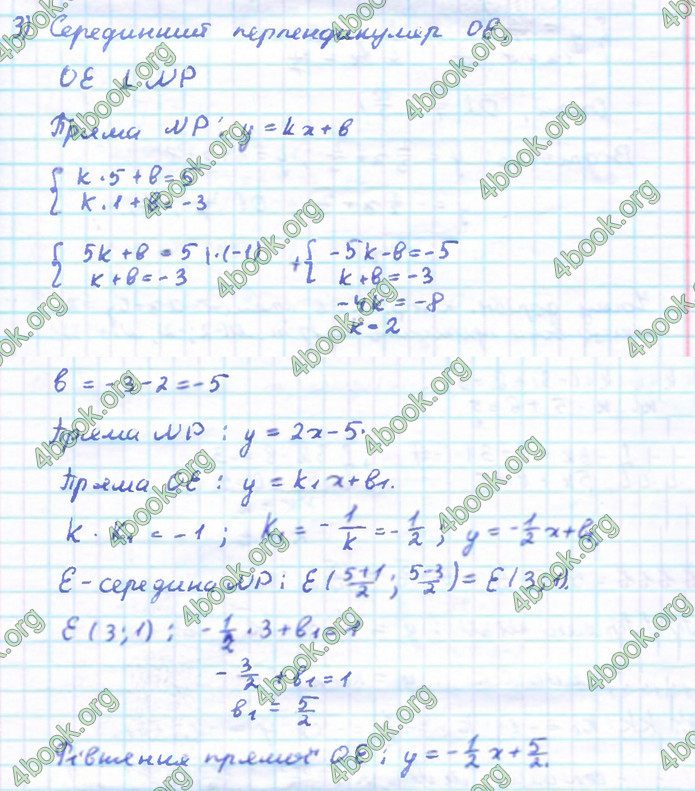 3) Серединний перпендикуляр OE.
OE ⊥ NP
Пряма NP: y = kx + b
{ k · 5 + b = 5
{ k · 1 + b = -3
{ 5k + b = 5 | · (-1)   + { -5k - b = -5
{ k + b = -3   { k + b = -3
-4k = -8
k = 2
b = -3 - 2 = -5
Пряма NP: y = 2x - 5.
Пряма OE: y = k₁x + b₁.
k · k₁ = -1; k₁ = -1/k = -1/2; y = -1/2 x + b₁.
E - середина NP: E(5+1/2; 5-3/2) = E(3; 1).
E(3; 1); -1/2 · 3 + b₁ = 1
-3/2 + b₁ = 1
b₁ = 5/2
Рівняння прямої OE: y = -1/2 x + 5/2.
4book.org